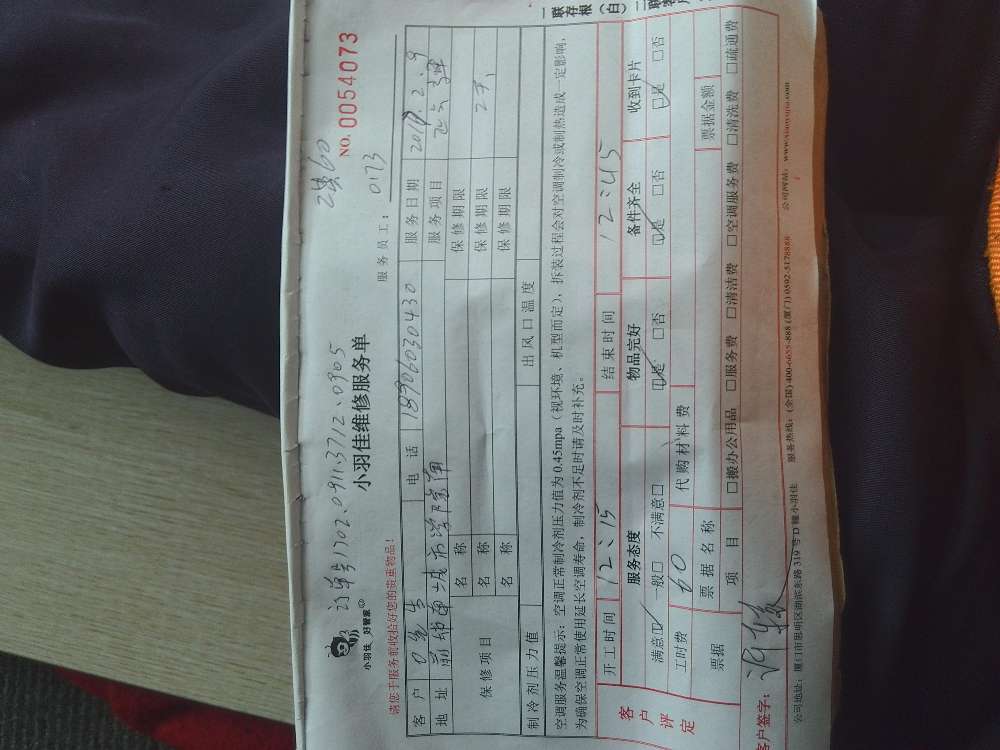 一联存根(白) 二联客户
2其60
NO.0054073
订单号1702.0911.3712.0905
小羽佳 好管家
小羽佳维修服务单
服务员工: 0173
请您于服务前收拾好您的贵重物品!
客户 电话 18906030430 服务日期 2017.2.9
地址 城市学院南 服务项目
保修项目 名称 保修期限
名称 保修期限
名称 保修期限
制冷剂压力值 出风口温度
空调服务温馨提示:空调正常制冷剂压力值为 0.45mpa(视环境、机型而定),拆装过程会对空调制冷或制热造成一定影响,
为确保空调正常使用延长空调寿命,制冷剂不足时请及时补充。
客户评定
开工时间 12:15 结束时间 12:45
服务态度 物品完好 备件齐全 收到卡片
满意☑ 一般□ 不满意□ ☑是 □否 ☑是 □否 ☑是 □否
工时费 60 代购材料费
票据 票据名称 票据金额
项目 □搬办公用品 □服务费 □清洁费 □空调服务费 □清洗费 □疏通费
客户签字:
公司地址:厦门市思明区湖滨东路 319 号 D 幢小羽佳 服务热线:(全国)400-6655-888 (厦门)0592-5178888 公司网站:www.xiaoyujia.com